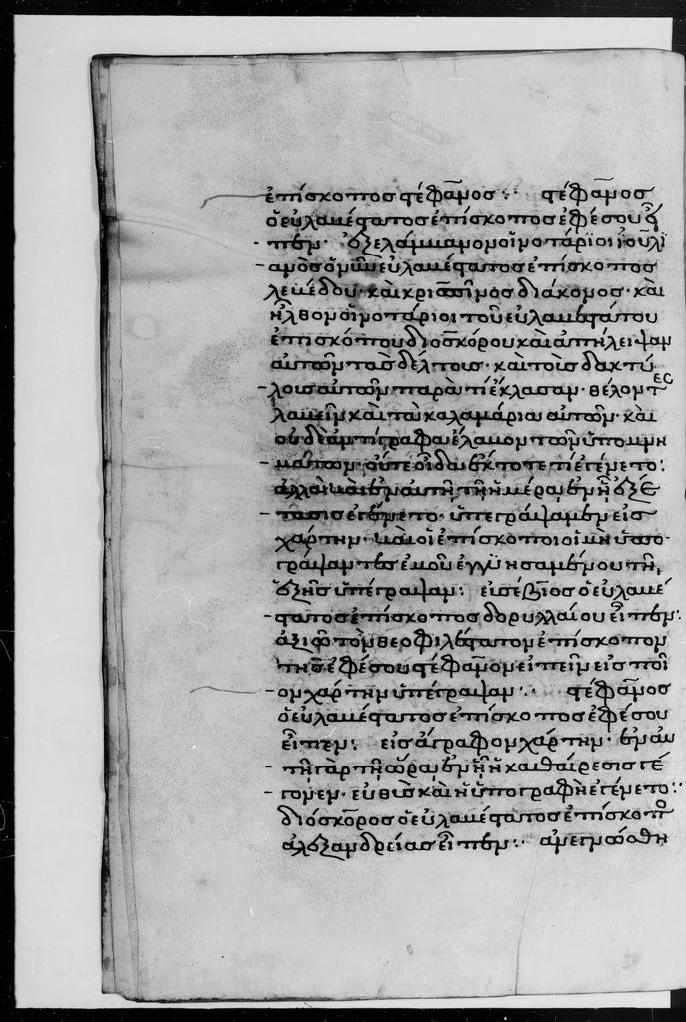 ἐπίσκοπος στέφανος :· στέφανος
ὁ εὐλαβέστατος ἐπίσκοπος ἐφέσου εἶ
πεν· ἐξέλαβανον οἱ νοτάριοι ἰουλι
ανὸς ὁ νῦν εὐλαβέστατος ἐπίσκοπος
λεβέδου· καὶ κρισπῖνος διάκονος· καὶ
ἦλθον οἱ νοτάριοι τοῦ εὐλαβεστάτου
ἐπισκόπου διοσκόρου καὶ ἀπήλειψαν
αὐτῶν τὰς δέλτους· καὶ τοὺς δακτύ
λους αὐτῶν παρὰ τι ἔκλασαν· θέλοντες
λαβεῖν καὶ τὰ καλαμάρια αὐτῶν· καὶ
οὐδὲ ἀντίγραφα ἔλαβον τῶν ὑπομνη
μάτων· οὔτε οἶδα ἕκτοτε τί ἐγένετο :
ἀλλὰ καὶ ἐν αὐτῇ τῇ ἡμέρα ἐν ἧ ἐξέ
τασις ἐγένετο· ὑπεγράψαμεν εἰς
χάρτην· καὶ οἱ ἐπίσκοποι οἱ μὴ ὑπο
γράψαντες ἐμοῦ ἐγγυησαμένου τῆ
ἑξῆς ὑπέγραψαν : εὐσέβιος ὁ εὐλαβέ
στατος ἐπίσκοπος δορυλλαίου εἶπεν :
ἀξιῶ τὸν θεοφιλέστατον ἐπίσκοπον
τῆς ἐφέσου στέφανον εἰπεῖν εἰς ποῖ
ον χάρτην ὑπέγραψαν :· στέφανος
ὁ εὐλαβέστατος ἐπίσκοπος ἐφέσου
εἶπεν : εἰς ἄγραφον χάρτην· ἐν αὐ
τῆ γὰρ τῆ ὥρα ἐν ἧ ἡ καθαίρεσις γέ
γονεν· εὐθὺς καὶ ἡ ὑπογραφὴ ἐγένετο :·
διόσκορος ὁ εὐλαβέστατος ἐπίσκοπο
ἀλεξανδρείας εἶπεν :· ἀνεγνώσθη